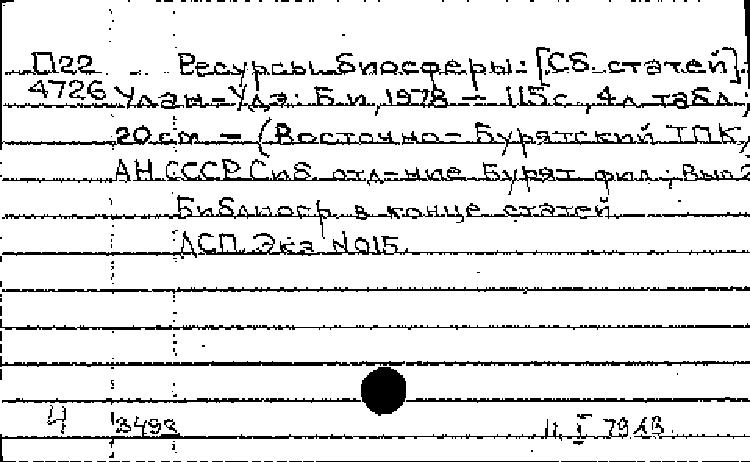 П22 Ресурсы биосферы: [Сб. статей].
4726 Улан-Удэ: Б.и., 1978 – 115 с., 4 л. табл.;
20 см – (Восточно-Бурятский ТПК /
АН СССР. Сиб. отд-ние. Бурят. фил.; Вып. 2
Библиогр. в конце статей.
ЛСП. Экз. №015.
4 3493